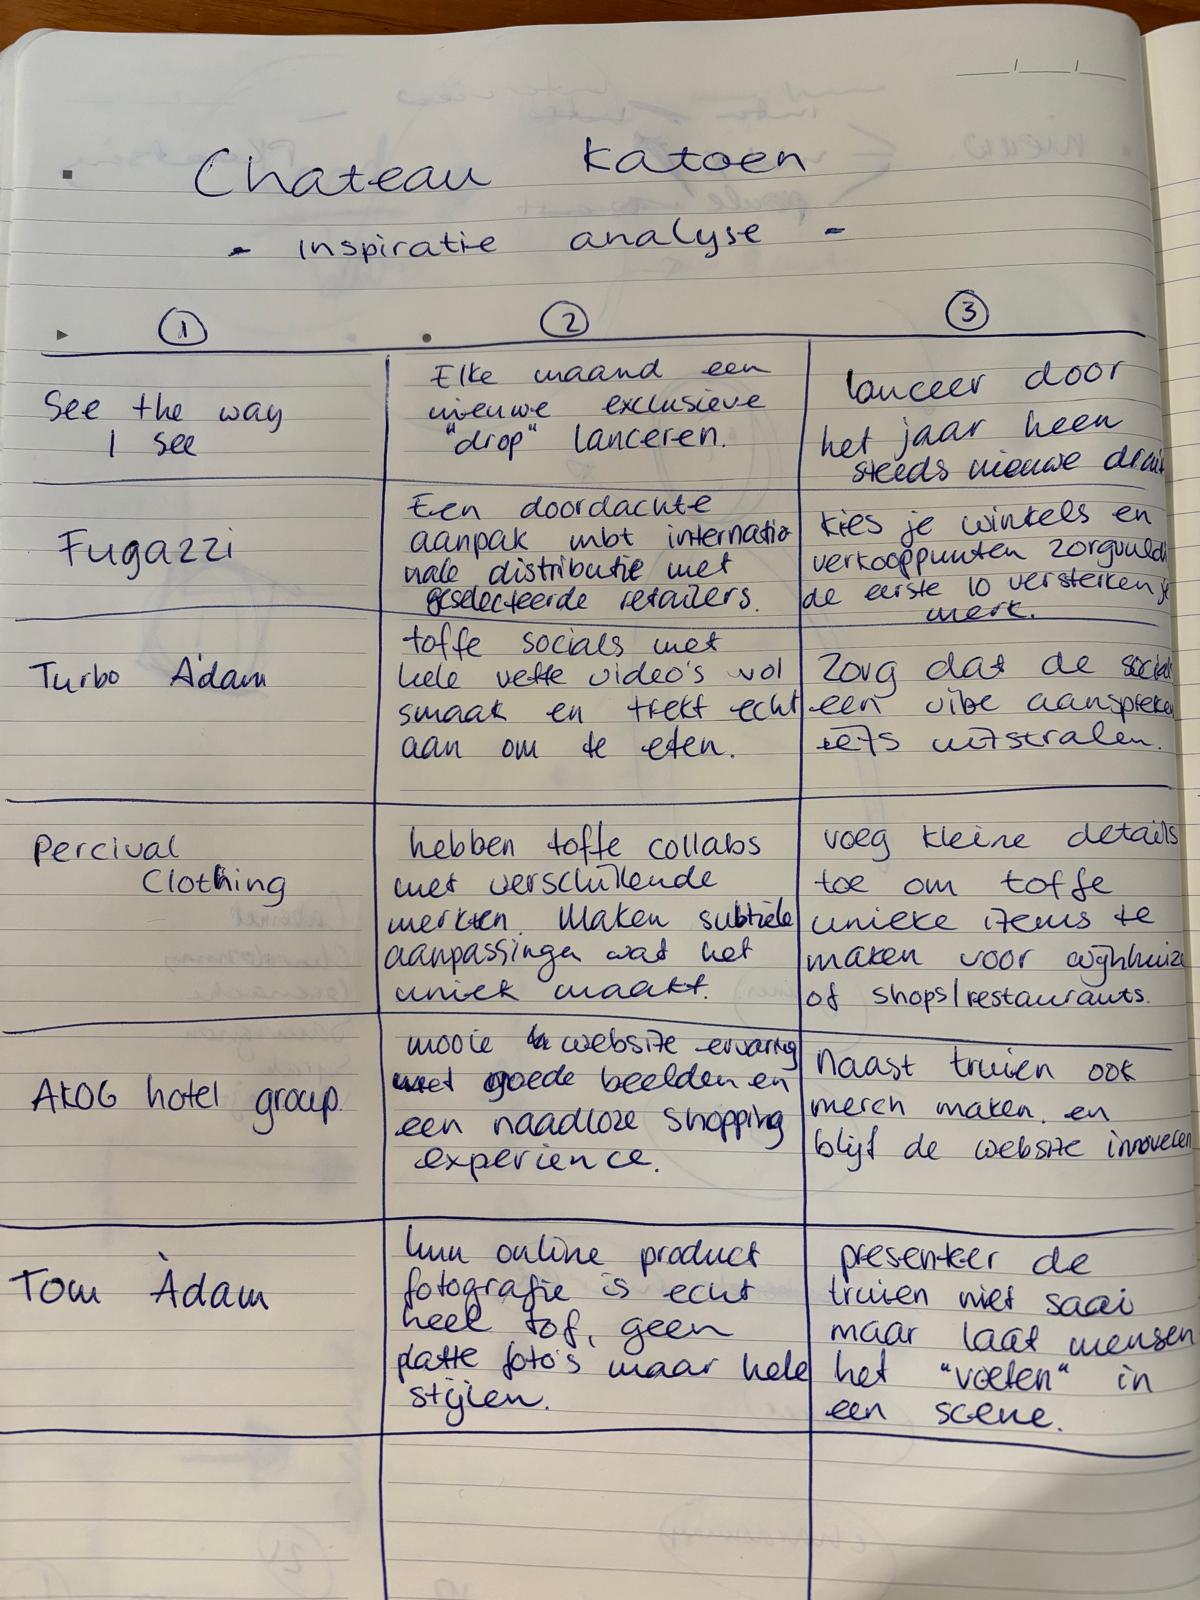 Chateau Katoen
- inspiratie analyse -
1
2
3
See the way
I see
Elke maand een
nieuwe exclusieve
"drop" lanceren.
lanceer door
het jaar heen
steeds nieuwe
Fugazzi
Een doordachte
aanpak mbt internatio
nale distributie met
geselecteerde retailers.
kies je winkels en
verkooppunten
de eerste 10 versterken je
merk.
Turbo Àdam
toffe socials met
hele vette video's vol
smaak en trekt echt
aan om te eten.
Zorg dat de social
een vibe aanspreken
iets uitstralen.
Percival
Clothing
hebben toffe collabs
met verschillende
merken. Maken subtiele
aanpassingen wat het
uniek maakt.
voeg kleine details
toe om toffe
unieke items te
maken voor wijnhuize
of shops/restaurants.
AKOG hotel group.
mooie website ervaring
met goede beelden en
een naadloze shopping
experience.
Naast truien ook
merch maken. en
blijf de website innoveren
Tom Àdam
hun online product
fotografie is echt
heel tof, geen
platte foto's maar hele
stijlen.
presenteer de
truien niet saai
maar laat mensen
het "voelen" in
een scene.